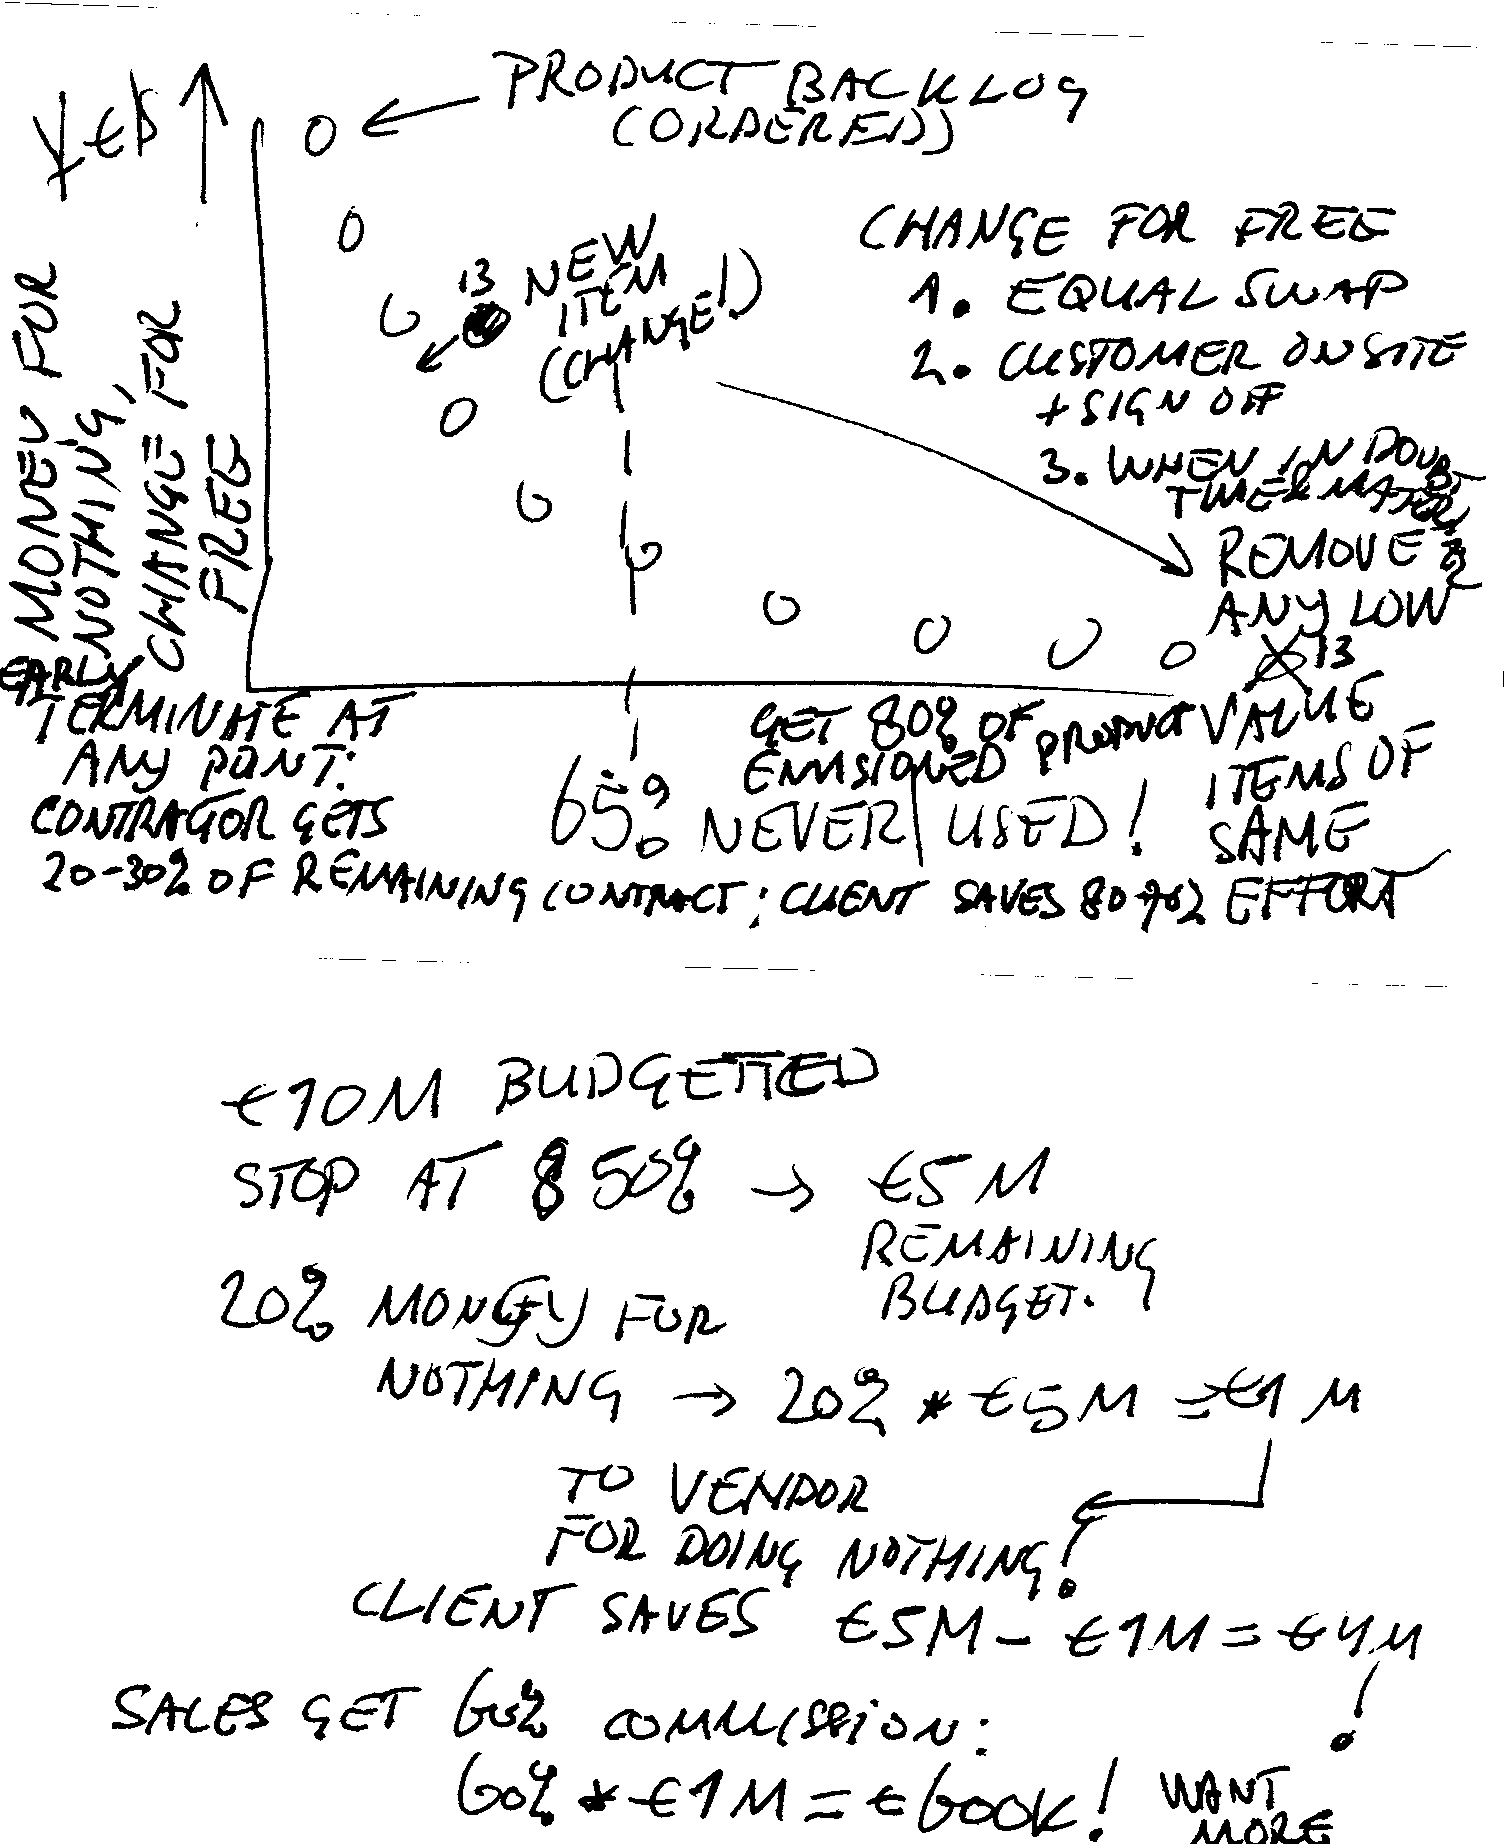 ¥€$
PRODUCT BACKLOG
(ORDERED)
MONEY FOR
NOTHING,
CHANGE FOR
FREE
13
NEW
ITEM
(CHANGE!)
CHANGE FOR FREE
1. EQUAL SWAP
2. CUSTOMER ON SITE
+ SIGN OFF
3. WHEN IN DOUBT
TIME & MATERIAL
REMOVE
ANY LOW
13
VALUE
ITEMS OF
SAME
EFFORT
EARLY
TERMINATE AT
ANY POINT:
CONTRACTOR GETS
20-30% OF REMAINING CONTRACT; CLIENT SAVES 80-70%
GET 80% OF
ENVISIONED PRODUCT
65% NEVER USED!
€10M BUDGETTED
STOP AT 50% → €5M
REMAINING
BUDGET.
20% MONEY FOR
NOTHING → 20% * €5M = €1M
TO VENDOR
FOR DOING NOTHING!
CLIENT SAVES €5M - €1M = €4M!
SALES GET 60% COMMISSION:
60% * €1M = €600K!
WANT
MORE